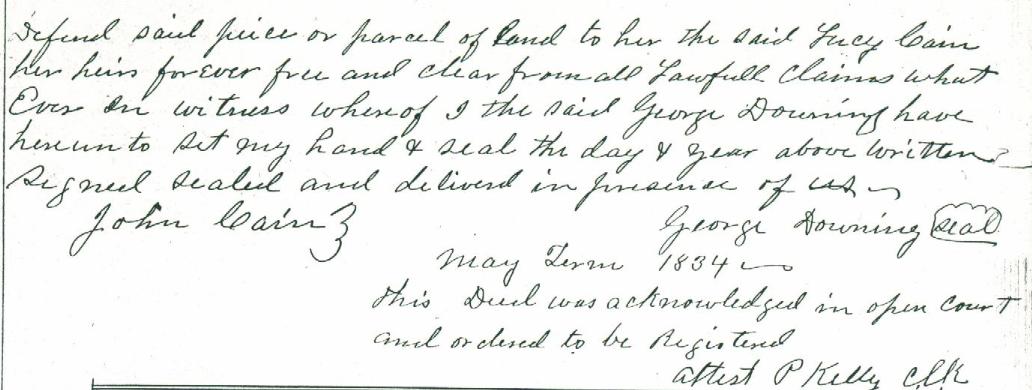 Defend said peice or parcel of land to her the said Lucy Cain
her heirs forever free and clear from all Lawfull Claims what
Ever In witness whereof I the said George Downing have
hereunto set my hand & seal the day & year above written
Signed sealed and deliverd in presence of us
John Cain }
George Downing seal
May Term 1834
This Deed was acknowledged in open Court
and ordered to be Registered
attest P Kelly clk